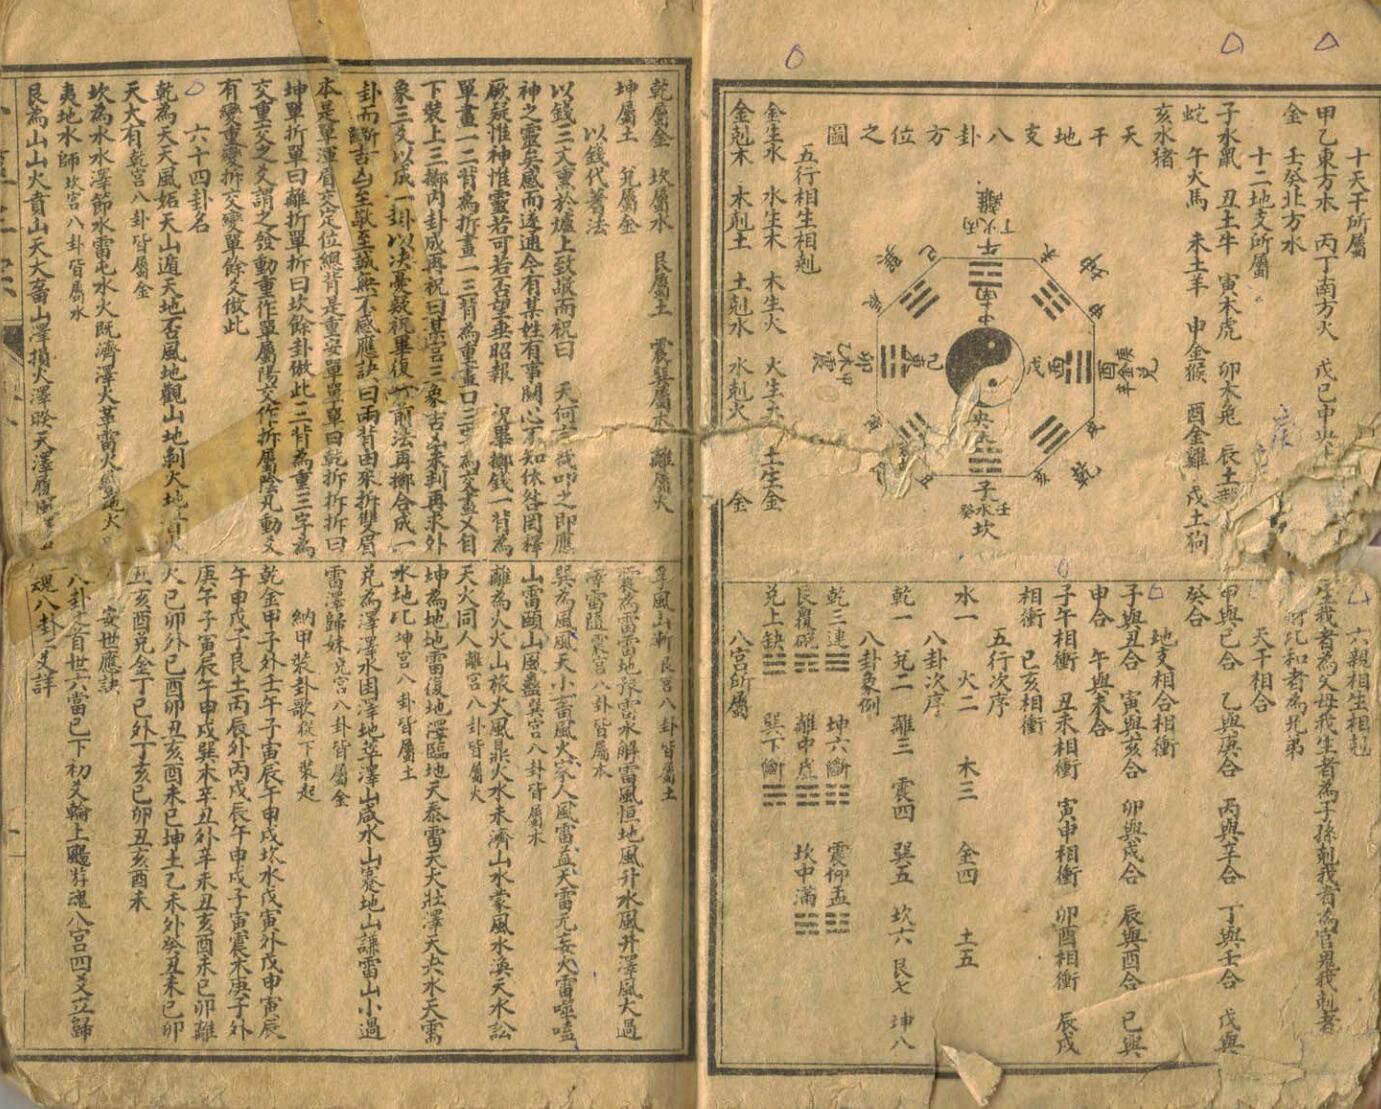 十天干所屬
甲乙東方木　丙丁南方火　戊己中央
金　壬癸北方水
十二地支所屬
子水鼠　丑土牛　寅木虎　卯木兔　辰土
蛇　午火馬　未土羊　申金猴　酉金雞　戌土狗
亥水猪
天干地支八卦方位之圖
離
丁火丙
午
南
中
己
戊
央
土
東
卯
乙木甲
震
酉
辛金庚
兌
未
坤
申
巳
巽
亥
乾
子
癸水壬
坎
五行相生相剋
金生水　水生木　木生火　火生土　土生金
金剋木　木剋土　土剋水　水剋火　金
六親相生相剋
生我者為父母我生者為子孫剋我者為官鬼我剋者
財比和者為兄弟
天干相合
甲與己合　乙與庚合　丙與辛合　丁與壬合　戊與
癸合
地支相合相衝
子與丑合　寅與亥合　卯與戌合　辰與酉合　巳與
申合　午與未合
子午相衝　丑未相衝　寅申相衝　卯酉相衝　辰戌
相衝　巳亥相衝
五行次序
水一　火二　木三　金四　土五
八卦次序
乾一　兌二　離三　震四　巽五　坎六　艮七　坤八
八卦象例
乾三連☰　坤六斷☷　震仰盂☳
艮覆碗☶　離中虛☲　坎中滿☵
兌上缺☱　巽下斷☴
八宮所屬
乾屬金　坎屬水　艮屬土　震巽屬木　離屬火
坤屬土　兌屬金
以錢代蓍法
以錢三文熏於爐上致敬而祝曰　天何言哉叩之即應
神之靈矣感而遂通今有某姓有事關心不知休咎罔釋
厥疑惟神惟靈若可若否望垂昭報　祝畢擲錢一背為
單畫一二背為拆畫一三背為重畫口三字為交畫乂自
下裝上三擲內卦成再祝曰某宮三象吉凶未判再求外
象三爻以成一卦以決憂疑祝畢復前法再擲合成一
卦而斷吉凶至敬至誠無不感應訣曰兩背由來拆雙眉
本是單渾眉交定位總背是重安單單單曰乾拆拆拆曰
坤單拆單曰離拆單拆曰坎餘卦倣此三背為重三字為
交重交之爻謂之發動重作單屬陽交作拆屬陰凡動爻
有變重變拆交變單餘爻倣此
六十四卦名
乾為天天風姤天山遁天地否風地觀山地剥火地晋火
天大有乾宮八卦皆屬金
坎為水水澤節水雷屯水火既濟澤火革雷火豐地火
夷地水師坎宮八卦皆屬水
艮為山山火賁山天大畜山澤損火澤睽天澤履風澤
孚風山漸艮宮八卦皆屬土
震為雷雷地豫雷水解雷風恒地風升水風井澤風大過
澤雷隨震宮八卦皆屬木
巽為風風天小畜風火家人風雷益天雷无妄火雷噬嗑
山雷頤山風蠱巽宮八卦皆屬木
離為火火山旅火風鼎火水未濟山水蒙風水渙天水訟
天火同人離宮八卦皆屬火
坤為地地雷復地澤臨地天泰雷天大壯澤天夬水天需
水地比坤宮八卦皆屬土
兌為澤澤水困澤地萃澤山咸水山蹇地山謙雷山小過
雷澤歸妹兌宮八卦皆屬金
納甲裝卦歌從下裝起
乾金甲子外壬午子寅辰午申戌坎水戊寅外戊申寅辰
午申戌子艮土丙辰外丙戌辰午申戌子寅震木庚子外
庚午子寅辰午申戌巽木辛丑外辛未丑亥酉未巳卯離
火己卯外己酉卯丑亥酉未巳坤土乙未外癸丑未巳卯
丑亥酉兌金丁巳外丁亥巳卯丑亥酉未
安世應訣
八卦之首世六當已下初爻輪上颺遊魂八宮四爻立歸
魂八卦三爻詳